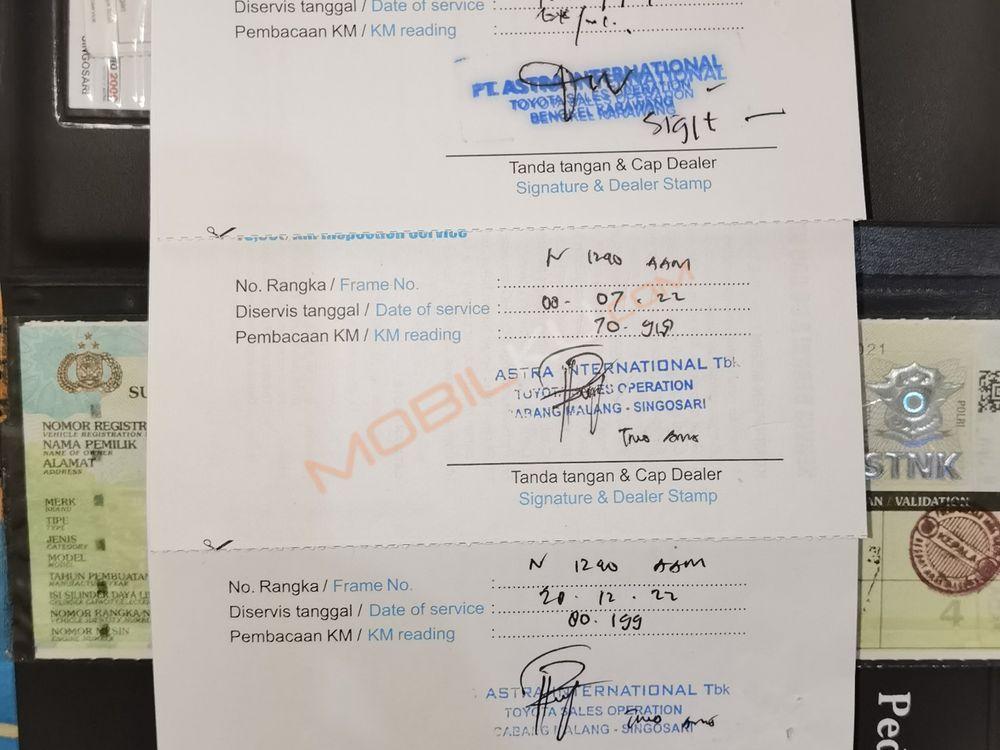 Diservis tanggal / Date of service :
Pembacaan KM / KM reading :
PT. ASTRA INTERNATIONAL
TOYOTA SALES OPERATION
BENGKEL KARAWANG
Sigit
Tanda tangan & Cap Dealer
Signature & Dealer Stamp
No. Rangka / Frame No. : N 1290 AAM
Diservis tanggal / Date of service : 08 - 07 . 22
Pembacaan KM / KM reading : 70. 918
ASTRA INTERNATIONAL Tbk
TOYOTA SALES OPERATION
CABANG MALANG - SINGOSARI
Tanda tangan & Cap Dealer
Signature & Dealer Stamp
No. Rangka / Frame No. : N 1290 AAM
Diservis tanggal / Date of service : 20 . 12 . 22
Pembacaan KM / KM reading : 80. 199
ASTRA INTERNATIONAL Tbk
TOYOTA SALES OPERATION
CABANG MALANG - SINGOSARI
SINGOSARI
SU
NOMOR REGISTR
VEHICLE REGISTRATION
NAMA PEMILIK
NAME OF OWNER
ALAMAT
ADDRESS
MERK
BRAND
TIPE
TYPE
JENIS
CATEGORY
MODEL
MODEL
TAHUN PEMBUATAN
ISI SILINDER/DAYA LI
NOMOR RANGKA/N
NOMOR MESIN
21
POLRI
STNK
AN / VALIDATION
KEPALA
4
Ped
MOBILKU.COM